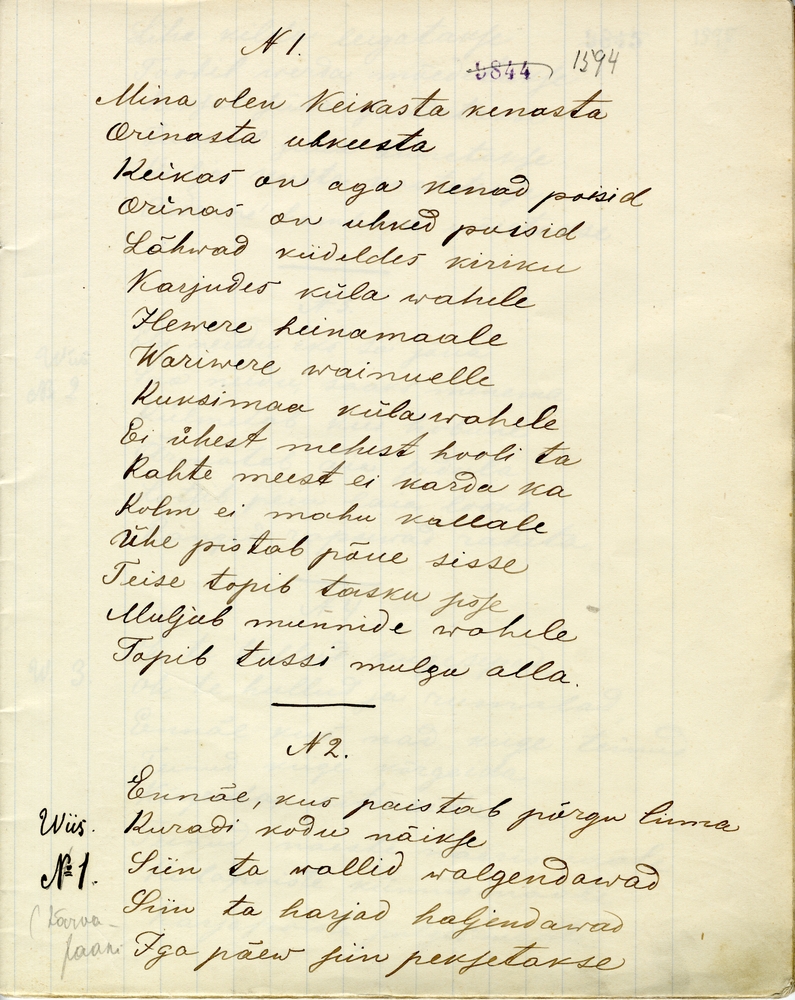 N 1.
5844 1594
Mina olen Keikasta kenasta
Orinasta uhkeesta
Keikas on aga kenad poisid
Orinas on uhked poisid
Lähwad kiideldes kiriku
Karjudes küla wahele
Hewere heinamaale
Wariwere wainuelle
Kuksimaa küla wahele
Ei ühest mehest hooli ta
Kahte meest ei karda ka
Kolm ei mahu kallale
Ühe pistab põue sisse
Teise topib tasku sisse
Muljub munnide wahele
Topib tussi mulgu alla.
N 2.
Ennäe, kus paistab põrgu linna
Wiis. Kuradi kodu näikse
No 1. Siin ta wallid walgendawad
Siin ta harjad haljendawad
Iga päew siin peksetakse